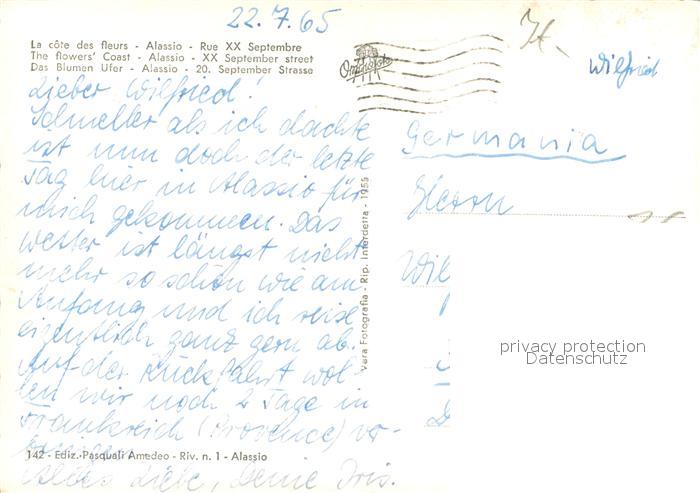 22.7.65
La côte des fleurs - Alassio - Rue XX Septembre
The flowers' Coast - Alassio - XX September street
Das Blumen Ufer - Alassio - 20. September Strasse
Lieber Wilfried!
Schneller als ich dachte
ist nun doch der letzte
Tag hier in Alassio für
mich gekommen. Das
Wetter ist längst nicht
mehr so schön wie am
Anfang und ich reise
eigentlich ganz gern ab.
Auf der Rückfahrt wol-
len wir noch 2 Tage in
Frankreich (Provence) ver-
142 - Ediz. Pasquali Amedeo - Riv. n. 1 - Alassio
Alles Liebe, Deine Iris.
Vera Fotografia - Rip. Interdetta - 1955
It.
Wilfried
Germania
Herrn
Wil
privacy protection
Datenschutz